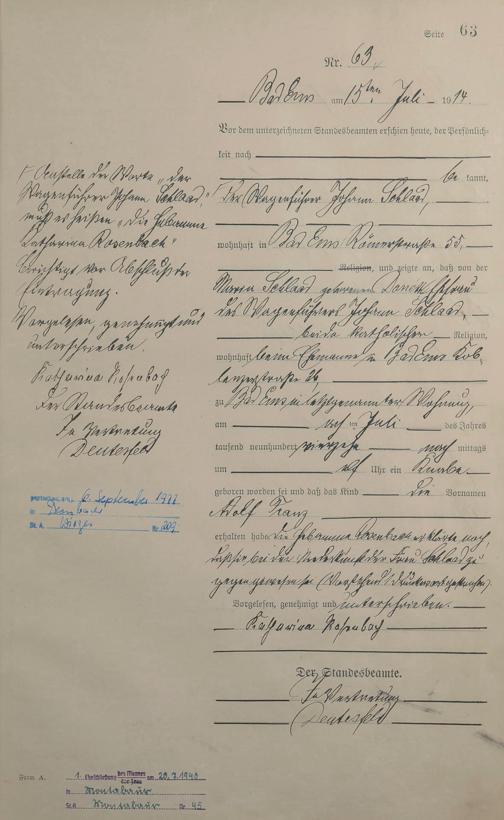 Seite 63
Nr. 63
Bad Ems am 15ten Juli 1914.
Vor dem unterzeichneten Standesbeamten erschien heute, der Persönlich-
keit nach
be kannt,
der Wagenführer Johann Schlaad,
wohnhaft in Bad Ems Römerstraße 55.
Religion, und zeigte an, daß von der
Maria Schlaad geborenen Ehefrau
des Wagenführers Johann Schlaad,
beide katholischer Religion,
wohnhaft beim Ehemanne in Bad Ems Cob-
lenzerstraße
zu Bad Ems in letztgenannter Wohnung,
am Juli des Jahres
tausend neunhundert vierzehn nach mittags
um elf Uhr ein Knabe
geboren worden sei und daß das Kind die Vornamen
Adolf Franz
erhalten habe. Die Hebamme Rosenbach erklärte noch,
daß sie bei der Niederkunft der Frau Schlaad zu-
gegen gewesen sei. (Vorstehend Druckworte gestrichen).
Vorgelesen, genehmigt und unterschrieben.
Katharina Rosenbach
Der Standesbeamte.
In Vertretung
Anstelle der Worte „der
Wagenführer Johann Schlaad,"
muß es heißen „die Hebamme
Katharina Rosenbach"
berichtigt vor Abschluß der
Eintragung.
Vorgelesen, genehmigt und
unterschrieben.
Katharina Rosenbach
Der Standesbeamte
In Vertretung
6. September 1977
in Dernbach
St. A. Wirges Nr. 209
Form A.
1. Eheschließung des Mannes am 20.7.1940
der Frau
in Montabaur
St.A. Montabaur Nr 45